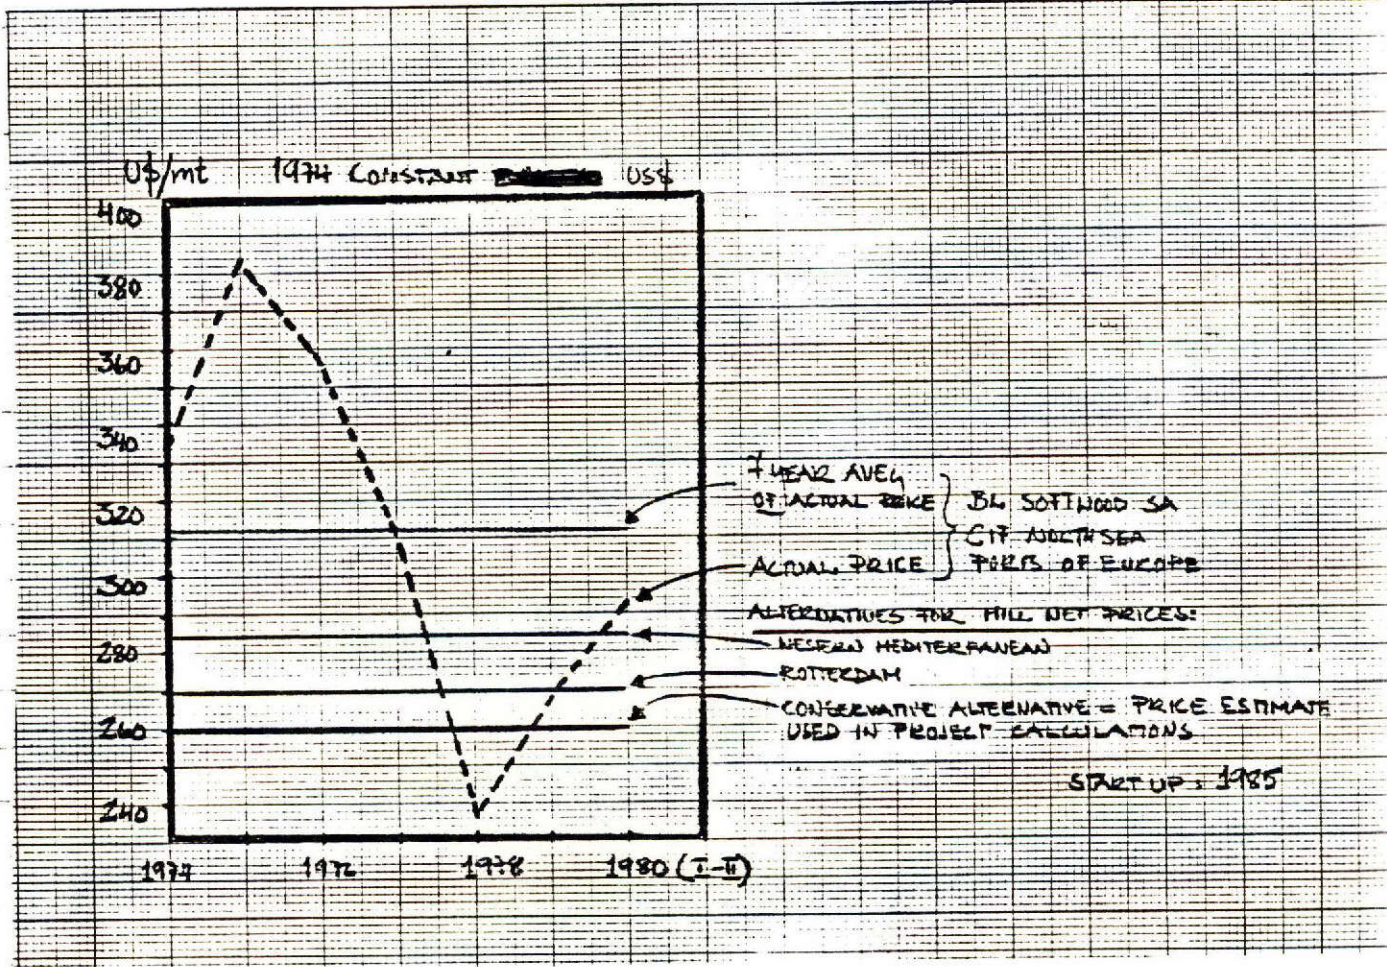 U$/mt 1974 CONSTANT US$
400
380
360
340
320
300
280
260
240
1974 1976 1978 1980 (I-II)
7 YEAR AVEG
OF ACTUAL PRICE
BL SOFTWOOD SA
CIF NORTH SEA
PORTS OF EUROPE
ACTUAL PRICE
ALTERNATIVES FOR MILL NET PRICES:
WESERN MEDITERRANEAN
ROTTERDAM
CONSERVATIVE ALTERNATIVE = PRICE ESTIMATE
USED IN PROJECT CALCULATIONS
START UP : 1985